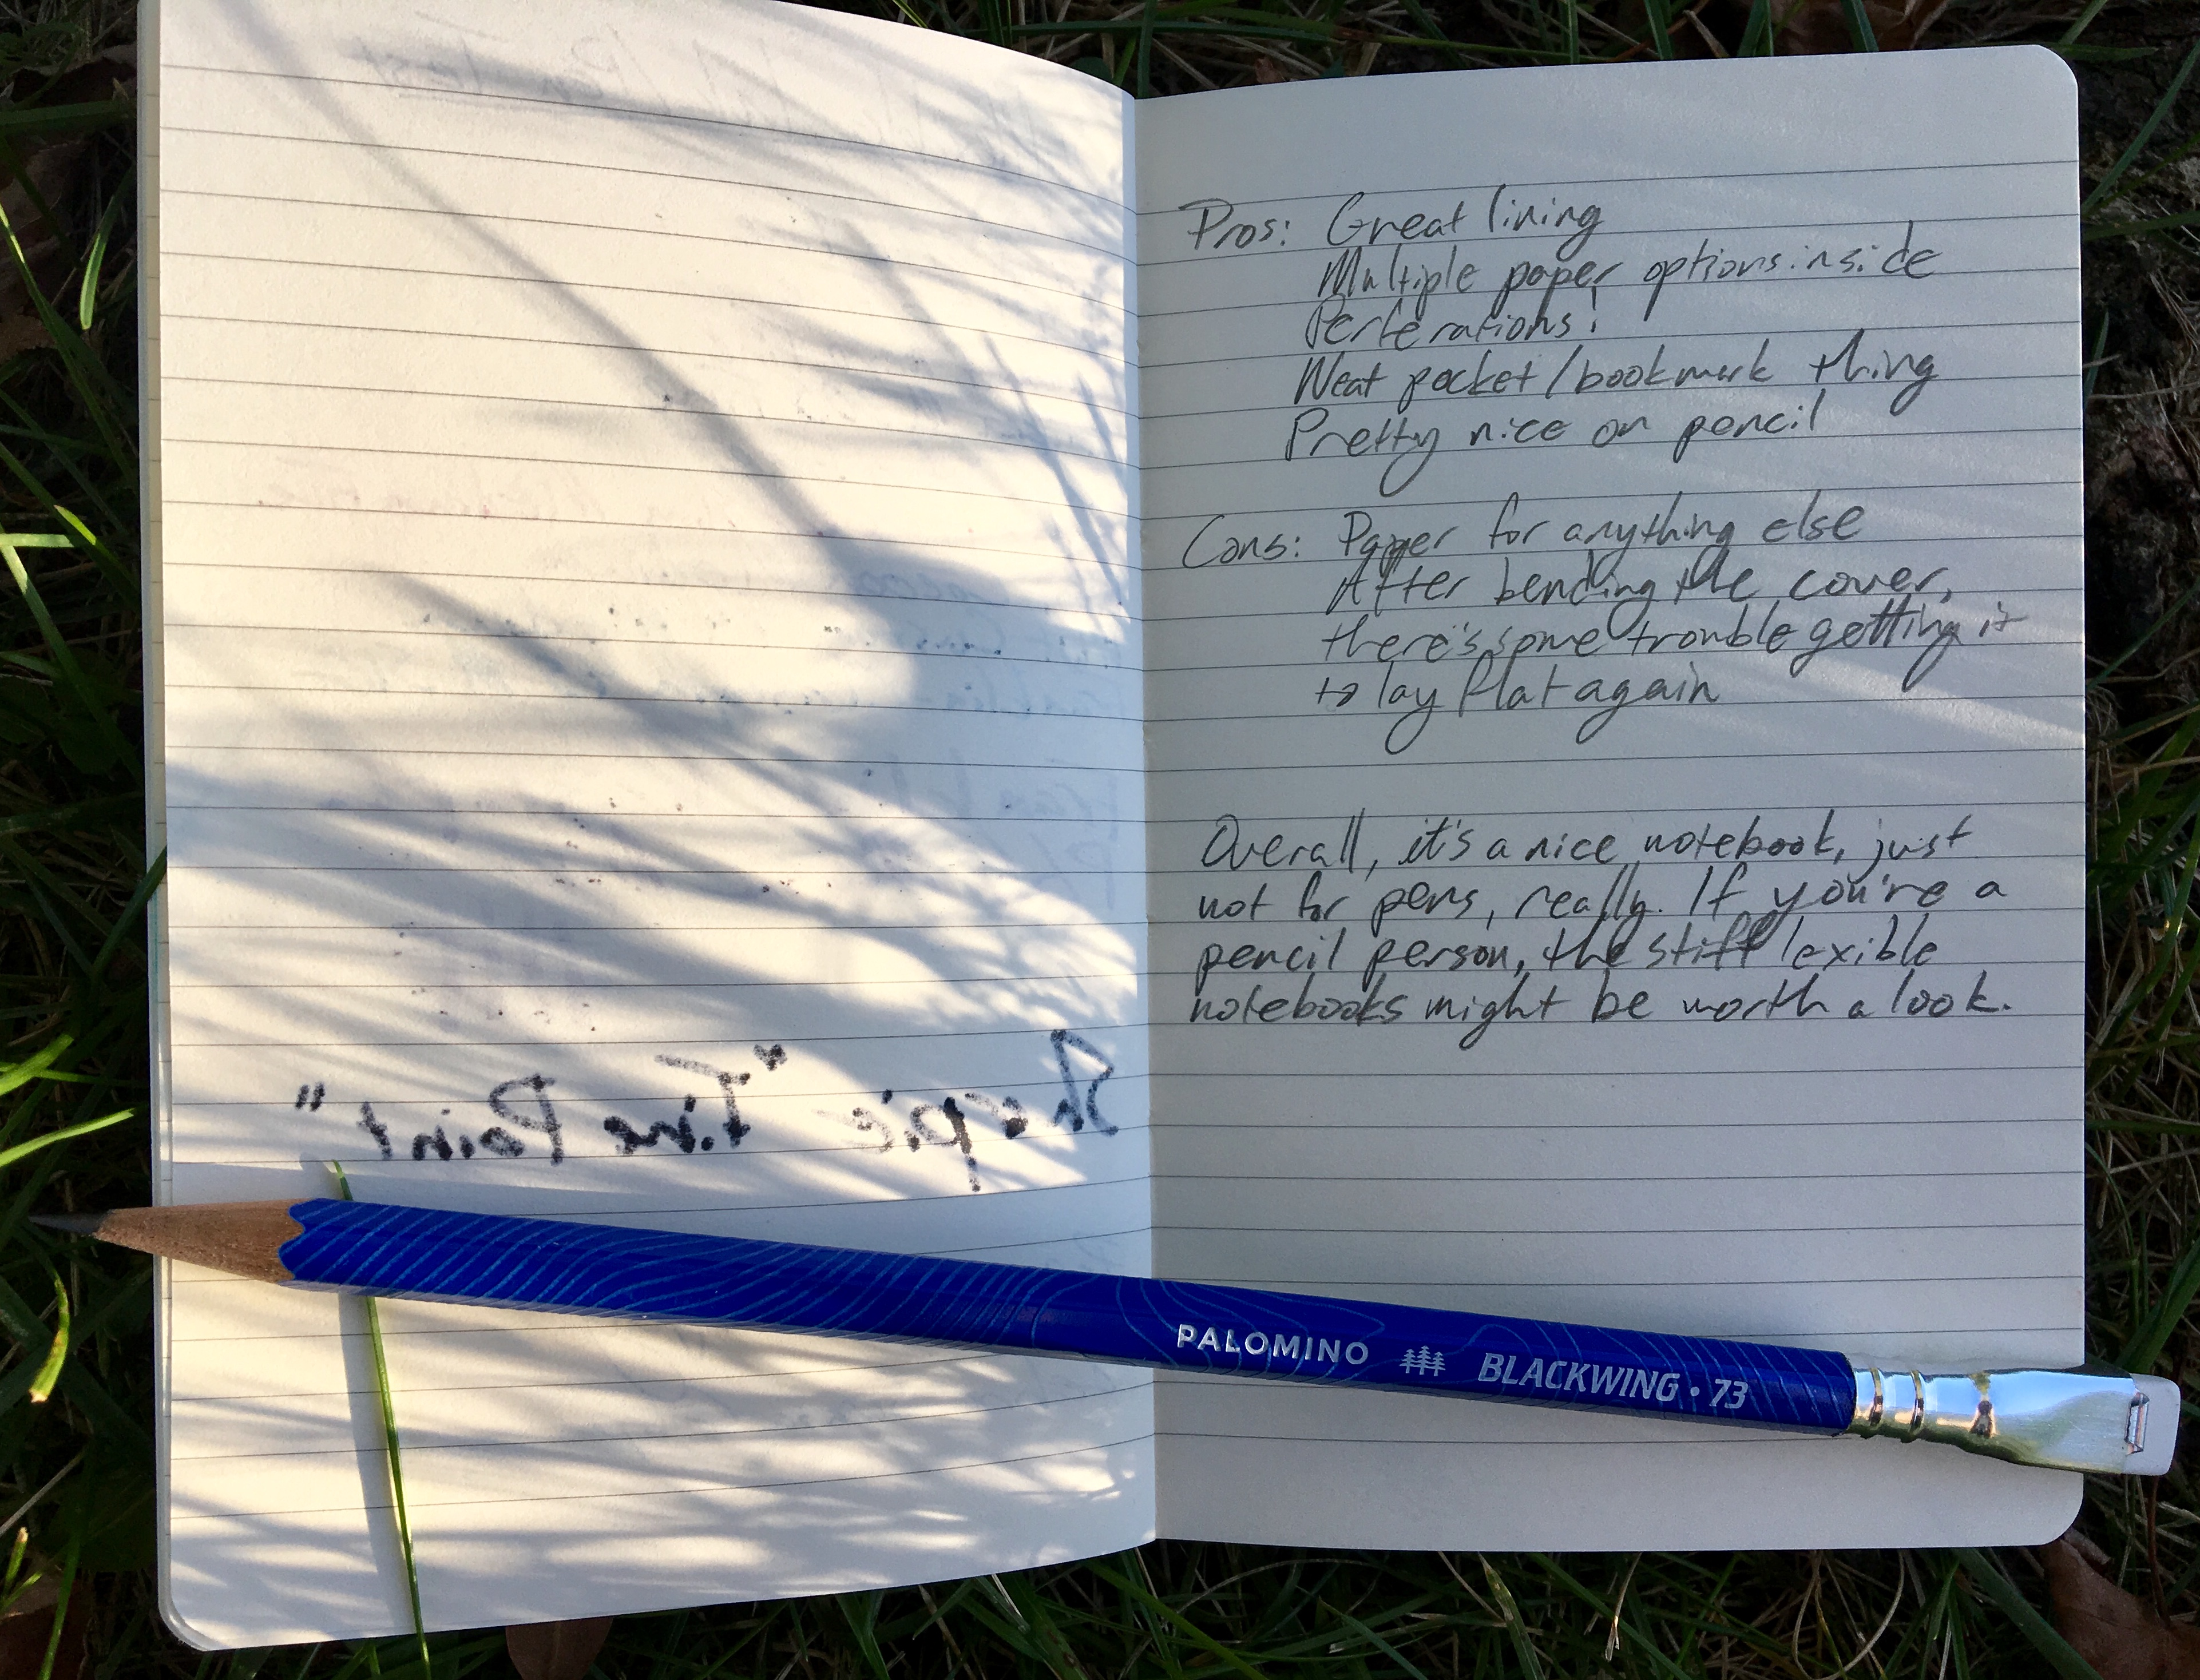 Sharpie "Fine Point"
Pros: Great lining
Multiple paper options inside
Perferations!
Neat pocket/bookmark thing
Pretty nice on pencil
Cons: Paper for anything else
After bending the cover,
there's some trouble getting it
to lay flat again
Overall, it's a nice notebook, just
not for pens, really. If you're a
pencil person, the stifflexible
notebooks might be worth a look.
PALOMINO BLACKWING • 73